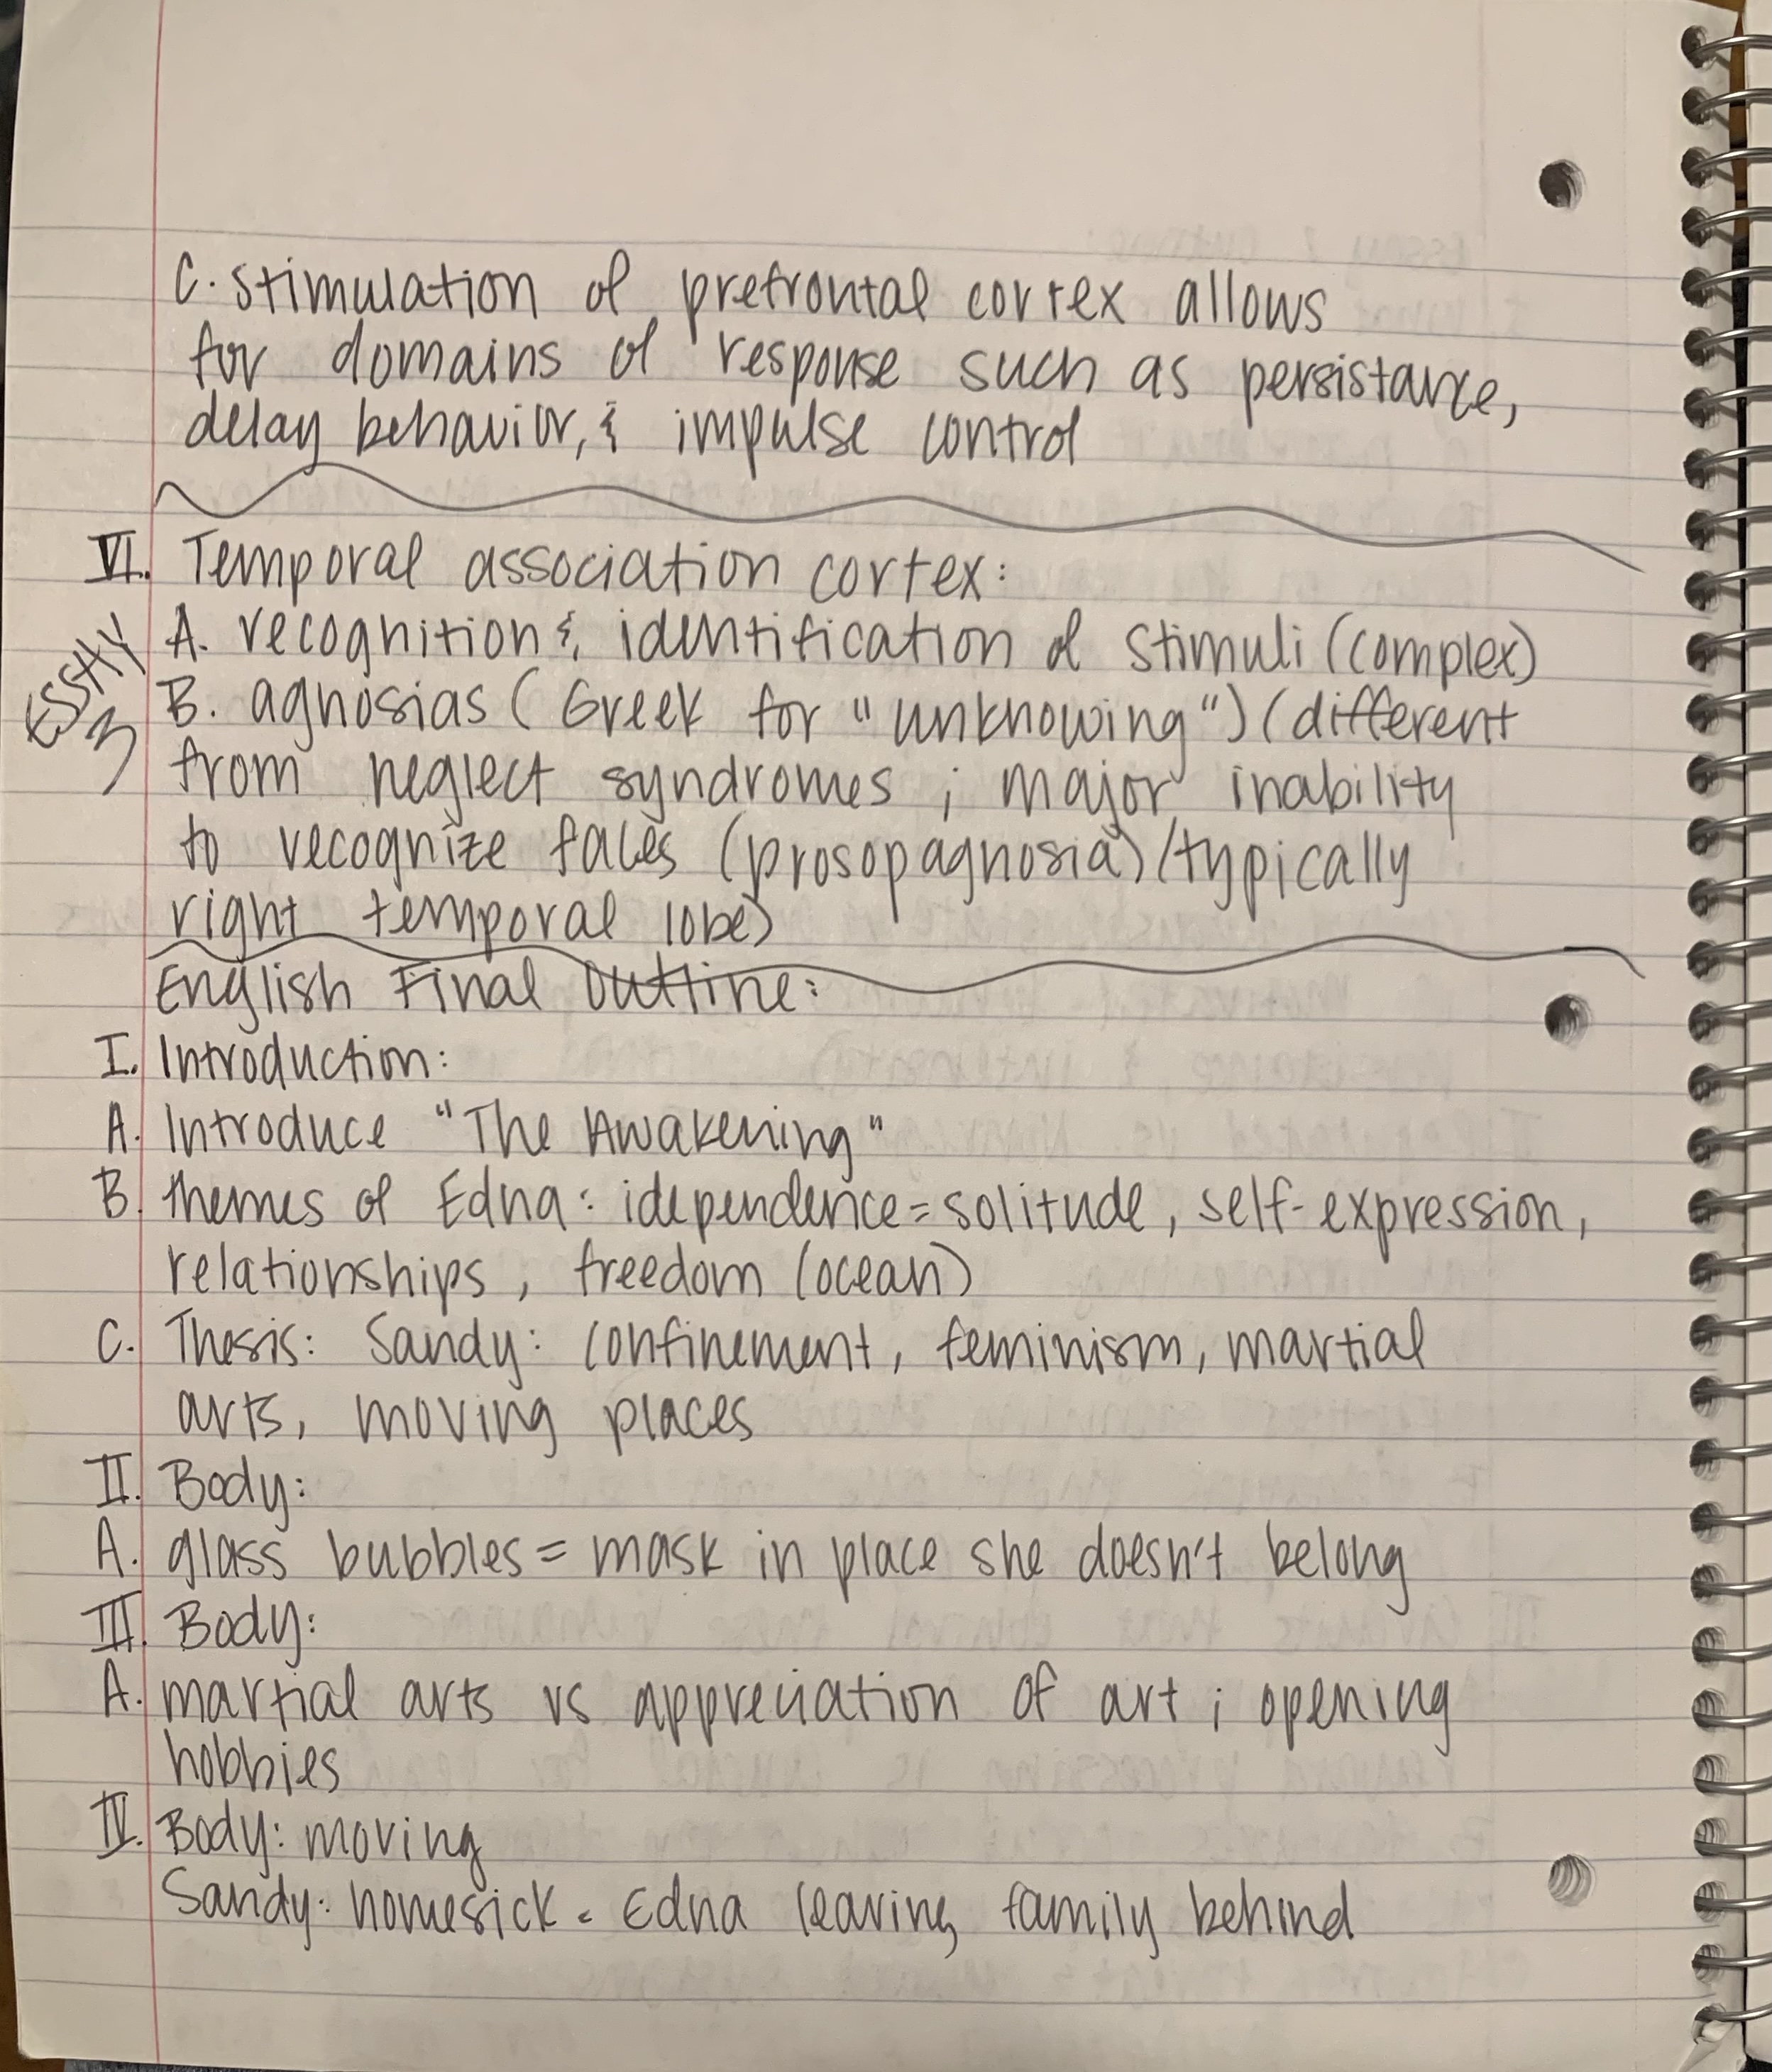 C. stimulation of prefrontal cortex allows
for domains of response such as persistance,
delay behavior, & impulse control
VI. Temporal association cortex:
ESSAY
3
A. recognition & identification of stimuli (complex)
B. agnosias (Greek for "unknowing") (different
from neglect syndromes ; major inability
to recognize faces (prosopagnosia) (typically
right temporal lobe)
English Final Outline:
I. Introduction:
A. Introduce "The Awakening"
B. themes of Edna: idependence = solitude, self-expression,
relationships, freedom (ocean)
C. Thesis: Sandy: confinement, feminism, martial
arts, moving places
II. Body:
A. glass bubbles = mask in place she doesn't belong
III. Body:
A. martial arts vs appreciation of art ; opening
hobbies
IV. Body: moving
Sandy: homesick = Edna leaving family behind